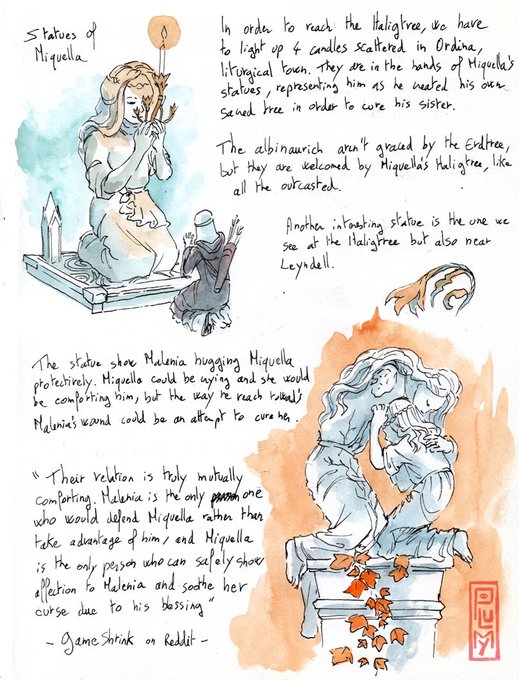 Statues of
Miquella
In order to reach the Haligtree, we have
to light up 4 candles scattered in Ordina,
liturgical town. They are in the hands of Miquella's
statues, representing him as he weated his own
sacred tree in order to cure his sister.
The albinaurich aren't graced by the Erdtree,
but they are welcomed by Miquella's Haligtree, like
all the outcasted.
Another interesting statue is the one we
see at the Haligtree but also near
Leyndell.
The statue show Malenia hugging Miquella
protectively. Miquella could be crying and she would
be comforting him, but the way he reach towards
Malenia's wound could be an attempt to cure her.
"Their relation is truly mutually
comforting. Malenia is the only one
who would defend Miquella rather than
take advantage of him, and Miquella
is the only person who can safely show
affection to Malenia and soothe her
curse due to his blessing"
- GameShrink on Reddit -
PLUMY